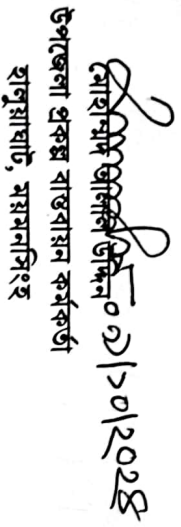 ০৯/১০/২০২৪
মোহাম্মদ আলাল উদ্দিন
উপজেলা প্রকল্প বাস্তবায়ন কর্মকর্তা
হালুয়াঘাট, ময়মনসিংহ